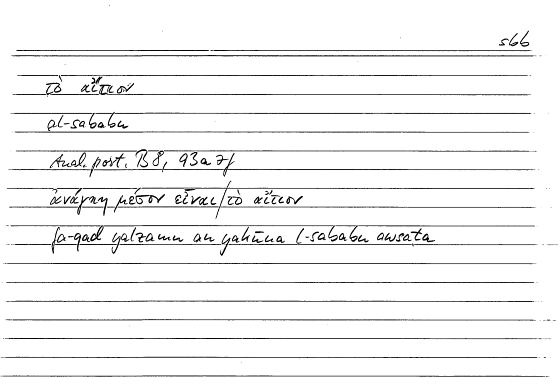 sbb
τὸ αἴτιον
al-sababu
Anal. post. B 8, 93a 7f
ἀνάγκη μέσον εἶναι/τὸ αἴτιον
fa-qad yalzamu an yakūna l-sababu awsaṭa